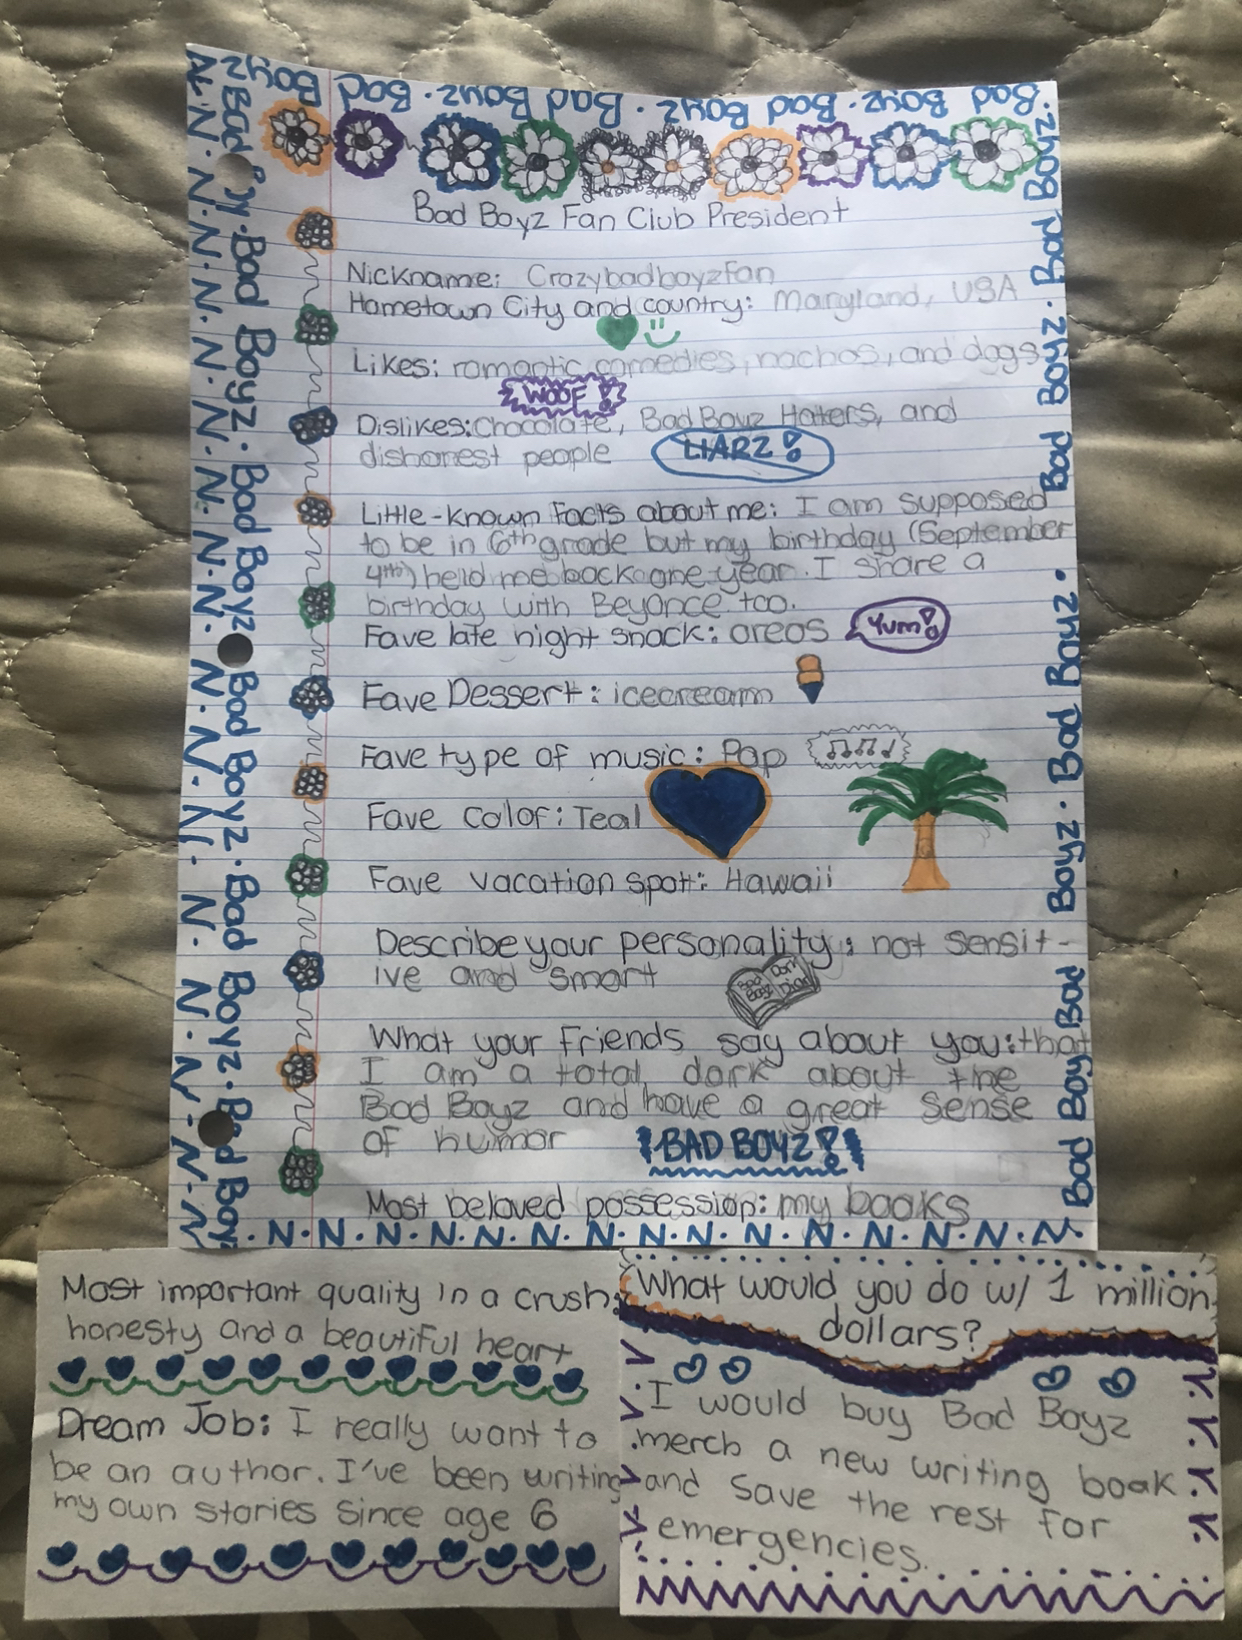 Bad Boyz · Bad Boyz · Bad Boyz · Bad Boyz · Bad
Bad Boyz Fan Club President
Nickname: Crazybadboyzfan
Hometown City and country: Maryland, USA
Likes: romantic comedies, nachos, and dogs
WOOF!
Dislikes: Chocolate, Bad Boyz Haters, and
dishonest people LIARZ!
Little-known facts about me: I am supposed
to be in 6th grade but my birthday (September
4th) held me back one year. I share a
birthday with Beyonce too.
Fave late night snack: oreos Yum!
Fave Dessert: icecream
Fave type of music: Pop
Fave color: Teal
Fave vacation spot: Hawaii
Describe your personality: not sensit-
ive and smart
Bad Boyz Dork Diary
What your friends say about you: that
I am a total dork about the
Bad Boyz and have a great sense
of humor !BAD BOYZ!
Most beloved possession: my books
N · N · N · N · N · N · N · N · N · N · N · N · N · N
Bad Boyz · Bad Boyz · Bad Boyz · Bad Boyz · Bad Boyz · Bad Boy
Bad Boy Bad Boyz · Bad Boyz · Bad Boyz · Bad Boyz
Most important quality in a crush:
honesty and a beautiful heart
Dream Job: I really want to
be an author. I've been writing
my own stories since age 6
What would you do w/ 1 million
dollars?
I would buy Bad Boyz
merch a new writing book
and save the rest for
emergencies.